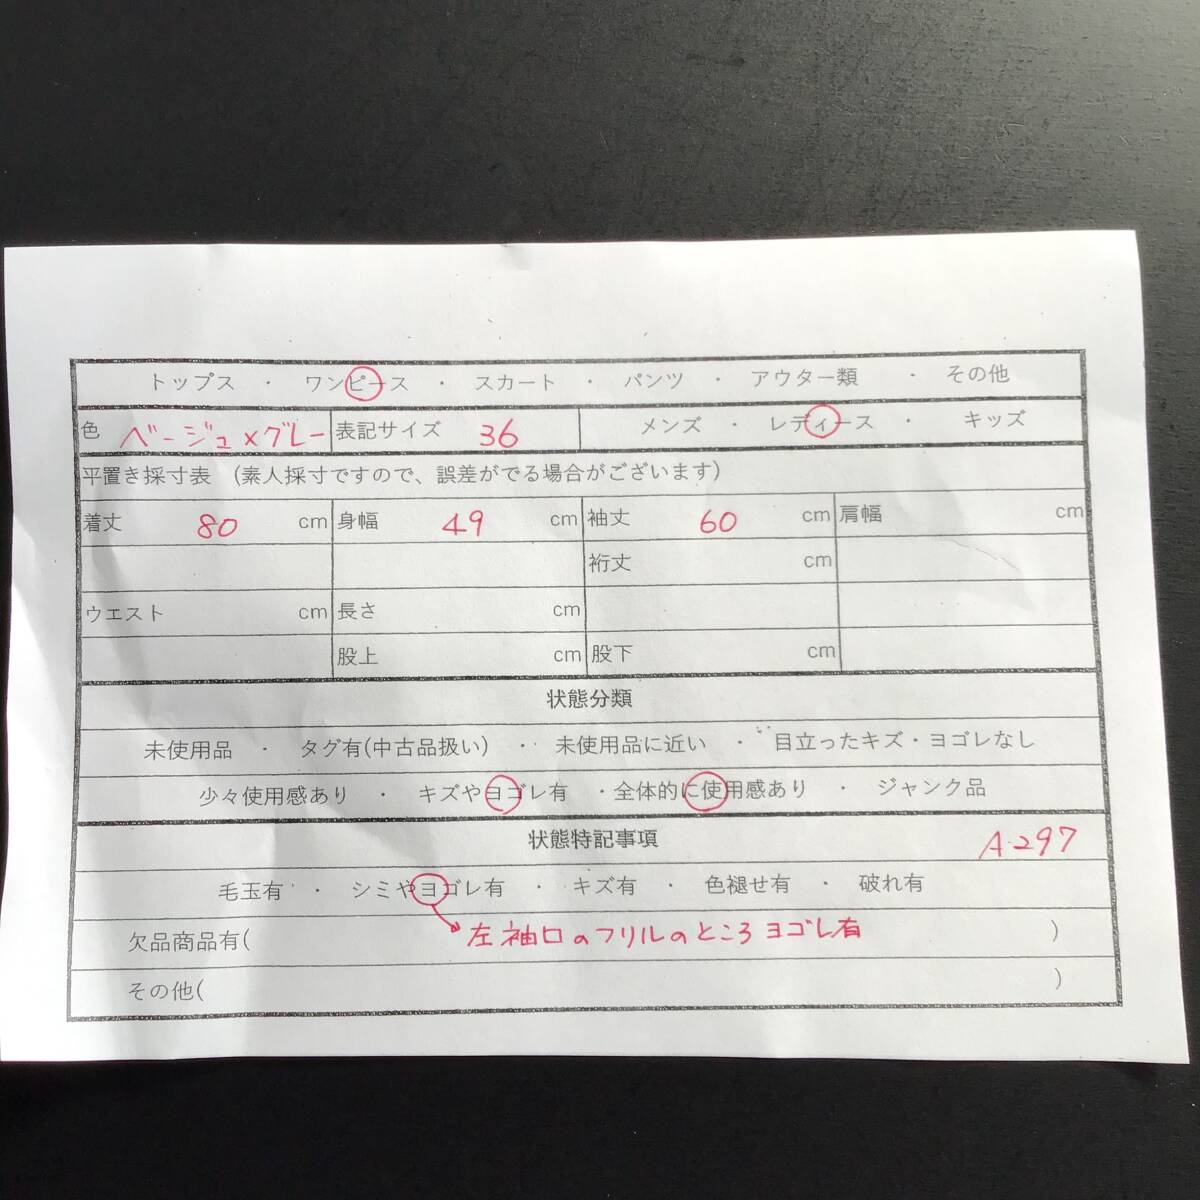 トップス ・ ワンピース ・ スカート ・ パンツ ・ アウター類 ・ その他
色 ベージュ×グレー 表記サイズ 36 メンズ ・ レディース ・ キッズ
平置き採寸表 (素人採寸ですので、誤差がでる場合がございます)
着丈 80 cm 身幅 49 cm 袖丈 60 cm 肩幅 cm
裄丈 cm
ウエスト cm 長さ cm
股上 cm 股下 cm
状態分類
未使用品 ・ タグ有(中古品扱い) ・ 未使用品に近い ・ 目立ったキズ・ヨゴレなし
少々使用感あり ・ キズやヨゴレ有 ・全体的に使用感あり ・ ジャンク品
状態特記事項 A-297
毛玉有 ・ シミやヨゴレ有 ・ キズ有 ・ 色褪せ有 ・ 破れ有
欠品商品有( 左袖口のフリルのところヨゴレ有 )
その他( )